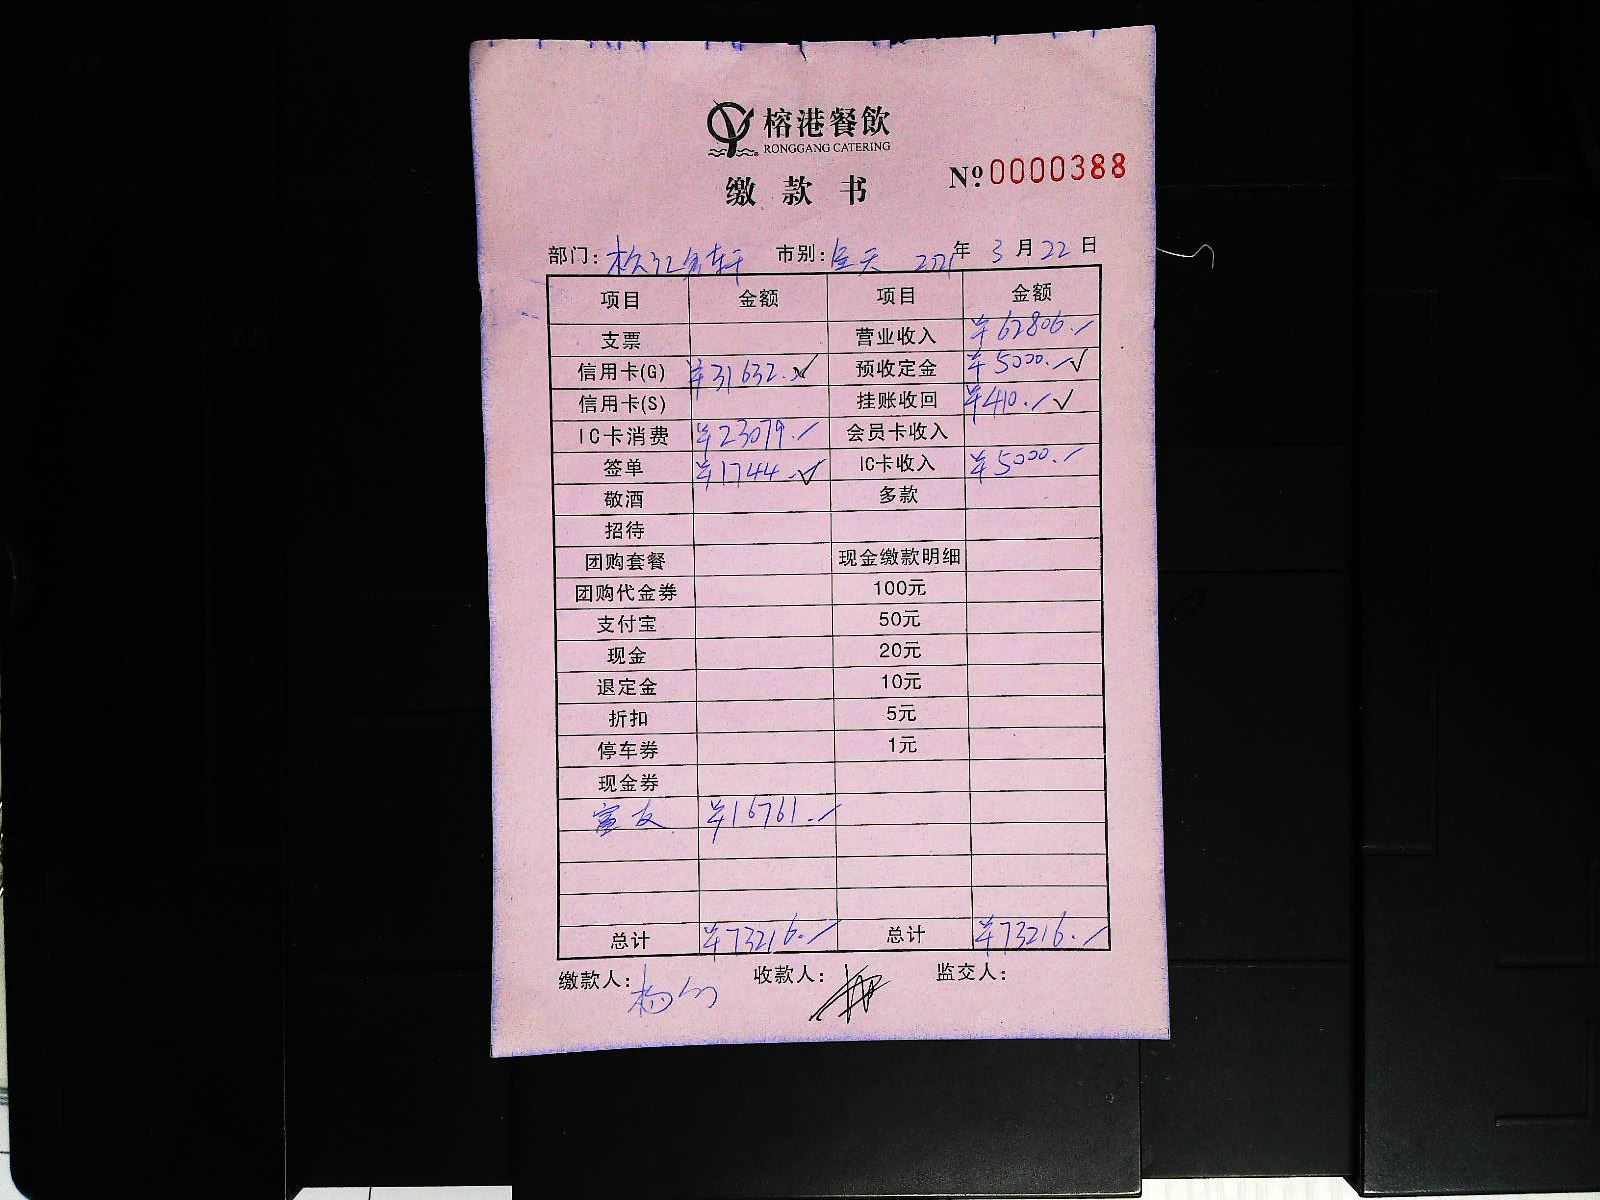 榕港餐飲
RONGGANG CATERING
缴款书
№0000388
部门: 市别:全天 2021年3月22日
项目 金额 项目 金额
支票 营业收入 ¥62806.
信用卡(G) ¥31632. 预收定金 ¥5000.
信用卡(S) 挂账收回 ¥410.
IC卡消费 ¥23079. 会员卡收入
签单 ¥1744. IC卡收入 ¥5000.
敬酒 多款
招待
团购套餐 现金缴款明细
团购代金券 100元
支付宝 50元
现金 20元
退定金 10元
折扣 5元
停车券 1元
现金券
¥16761.
总计 ¥73216. 总计 ¥73216.
缴款人: 收款人: 监交人: